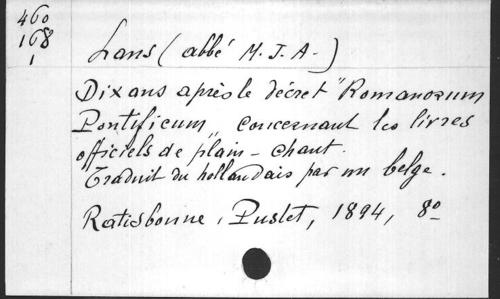 460
168
1
Lans (abbé M. J. A.)
Dix ans après le décret "Romanorum
Pontificum„ concernant les livres
officiels de plain-chant.
Traduit du hollandais par un belge.
Ratisbonne, Pustet, 1894, 8º